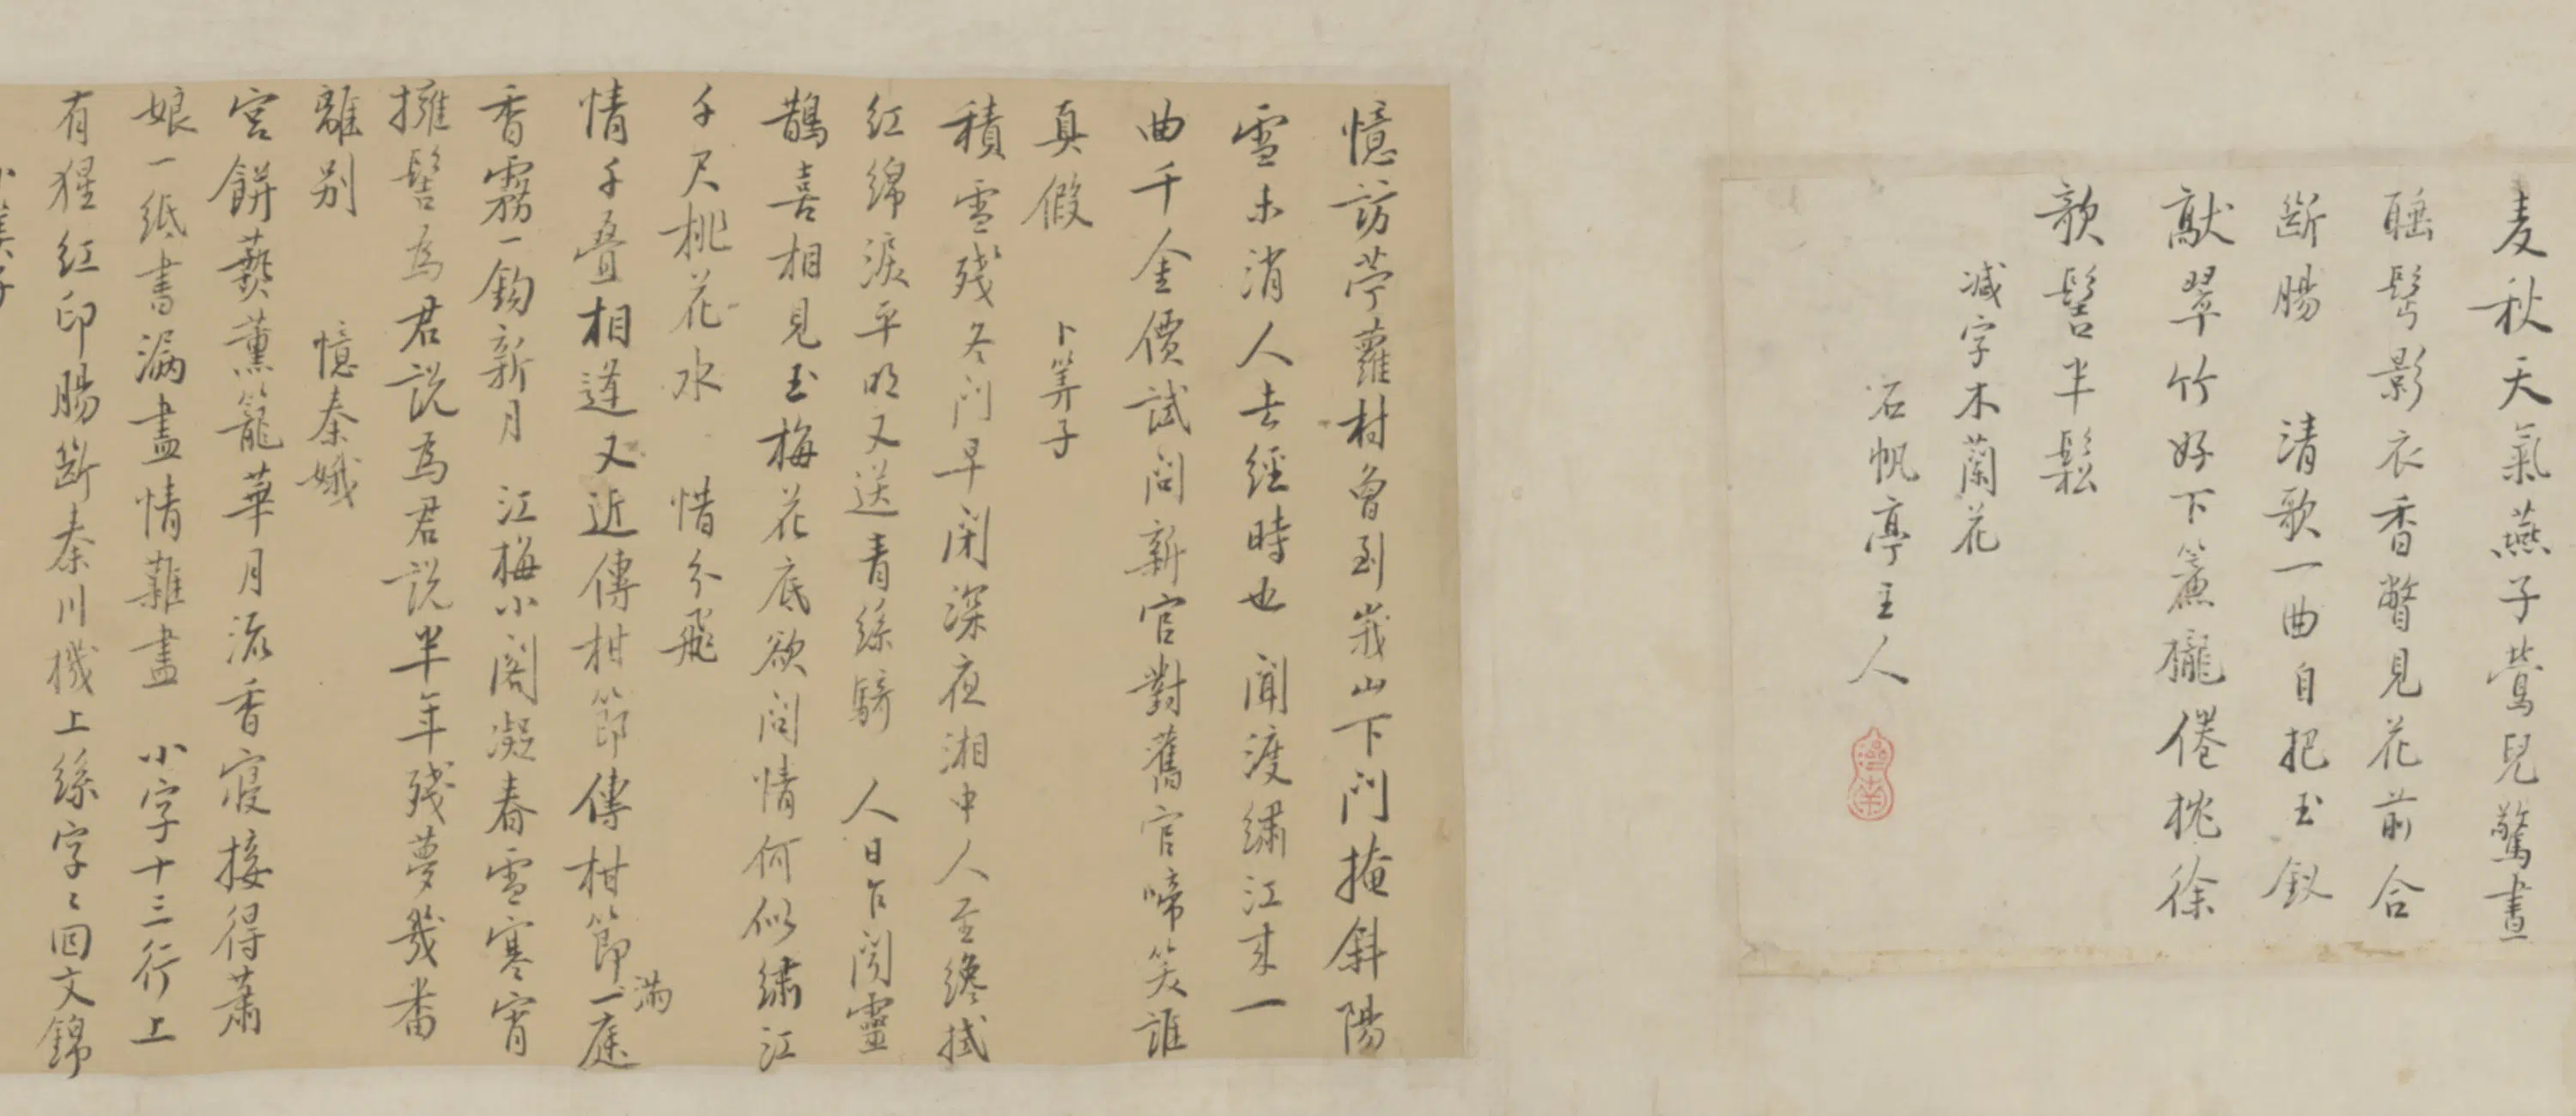 麦秋天氣燕子鶯兒驚晝
䀼髩影衣香瞥見花前合
斷腸　清歌一曲自把玉釵
獻翠竹好下簾櫳倦枕徐
欹髻半鬆
減字木蘭花
石帆亭主人
憶訪苧蘿村曾到峩山下門掩斜陽
雪未消人去經時也　聞渡繡江來一
曲千金價試問新官對舊官啼笑誰
真假　卜筭子
積雪殘冬門早閉深夜湘中人至纔拭
紅綿淚平明又送青絲騎　人日乍聞靈
鵲喜相見玉梅花底欲問情何似繡江
千尺桃花水　惜分飛
情千疊相逢又近傳柑節傳柑節一庭滿
香霧一鉤新月　江梅小閣凝春雪寒宵
擁髻為君說為君說半年殘夢幾番
離別　憶秦娥
宮餅爇薰籠華月流香寢接得蕭
娘一紙書漏盡情難盡　小字十三行上
有猩紅印腸斷秦川機上絲字〻回文錦